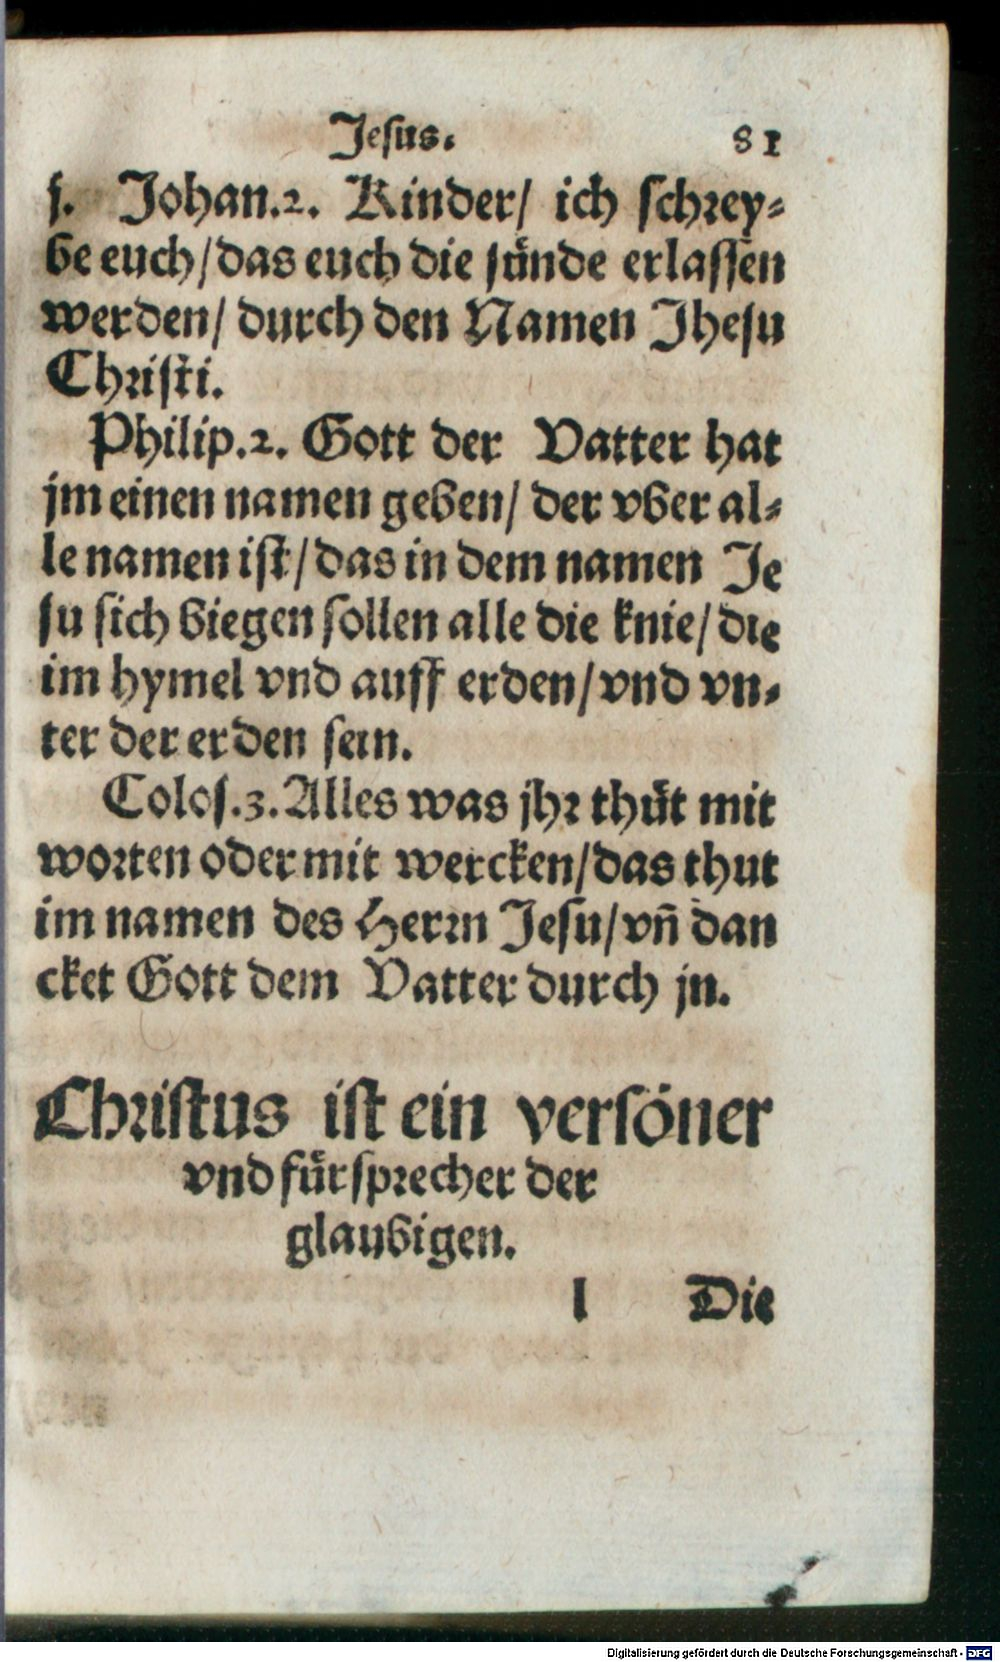 Jesus. 81
ſ. Johan.2. Kinder/ ich ſchrey⸗
be euch/das euch die ſünde erlaſſen
werden/ durch den Namen Jheſu
Chriſti.
Philip.2. Gott der Vatter hat
jm einen namen geben/ der vber al⸗
le namen iſt/das in dem namen Je
ſu ſich biegen ſollen alle die knie/die
im hymel vnd auff erden/vnd vn⸗
ter der erden ſein.
Coloſ.3. Alles was jhr thüt mit
worten oder mit wercken/das thut
im namen des Herrn Jeſu/vñ dan
cket Gott dem Vatter durch jn.
Chriſtus iſt ein verſöner
vnd fürſprecher der
glaubigen.
l Die
Digitalisierung gefördert durch die Deutsche Forschungsgemeinschaft - DFG